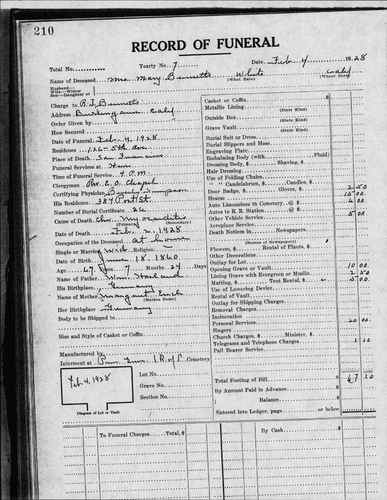 210
RECORD OF FUNERAL
Total No. Yearly No. 7 Date Feb 4 1928
Name of Deceased Mrs Mary Bennetts White Calif
(What Race) (Where Born)
Husband
Wife—Widow
Son—Daughter of
Charge to R. J. Bennetts
Address Burlingame Calif
Order Given by
How Secured
Date of Funeral Feb 4, 1928
Residence 126 - 5th Ave.
Place of Death San Francisco
Funeral Services at Home
Time of Funeral Service 4 P.M.
Clergyman
Certifying Physician
His Residence 384 Post St
Number of Burial Certificate 26
Cause of Death Chr. Myocarditis
(Primary) (Secondary)
Date of Death Feb. 2, 1928
Occupation of the Deceased at home
Single or Married Wid. Religion
Date of Birth June 18, 1860
Age 67 Years Months 24 Days
Name of Father
His Birthplace Germany
Name of Mother Margaret
(Maiden Name)
Her Birthplace Germany
Body to be Shipped to
Size and Style of Casket or Coffin
Manufactured by
Interment at I.O.O.F. Cemetery
Lot No.
Grave No.
Section No.
Feb 4, 1928
Diagram of Lot or Vault
Casket or Coffin
Metallic Lining
(State Kind)
Outside Box
(State Kind)
Grave Vault
(State Kind)
Burial Suit or Dress
Burial Slippers and Hose
Engraving Plate
Embalming Body (with Fluid)
Dressing Body, $ Shaving, $
Hair Dressing
Use of Folding Chairs
" " Candelabrum, $ Candles, $
Door Badge, $ Gloves, $ 12 50
Hearse 12 00
Auto Limousines to Cemetery @ $ 6 00
Autos to R. R. Station @ $
Other Vehicle Service 5 00
Aeroplane Service
Death Notices in Newspapers
(Names of Newspapers)
Flowers, $ Rental of Plants, $
Other Decorations
Outlay for Lot
Opening Grave or Vault 10 00
Lining Grave with Evergreen or Muslin 2 50
Matting, $ Tent Rental, Chairs $ 5 00
Use of Lowering Device
Rental of Vault
Outlay for Shipping Charges
Removal Charges
Incineration
Personal Services 20 00
Singers
Church Charges, $ Minister, $
Telegrams and Telephone Charges 1 10
Pall Bearer Service
Total Footing of Bill $ 67 10
By Amount Paid in Advance
Balance
Entered into Ledger, page or below
To Funeral Charges Total, $
By Cash $